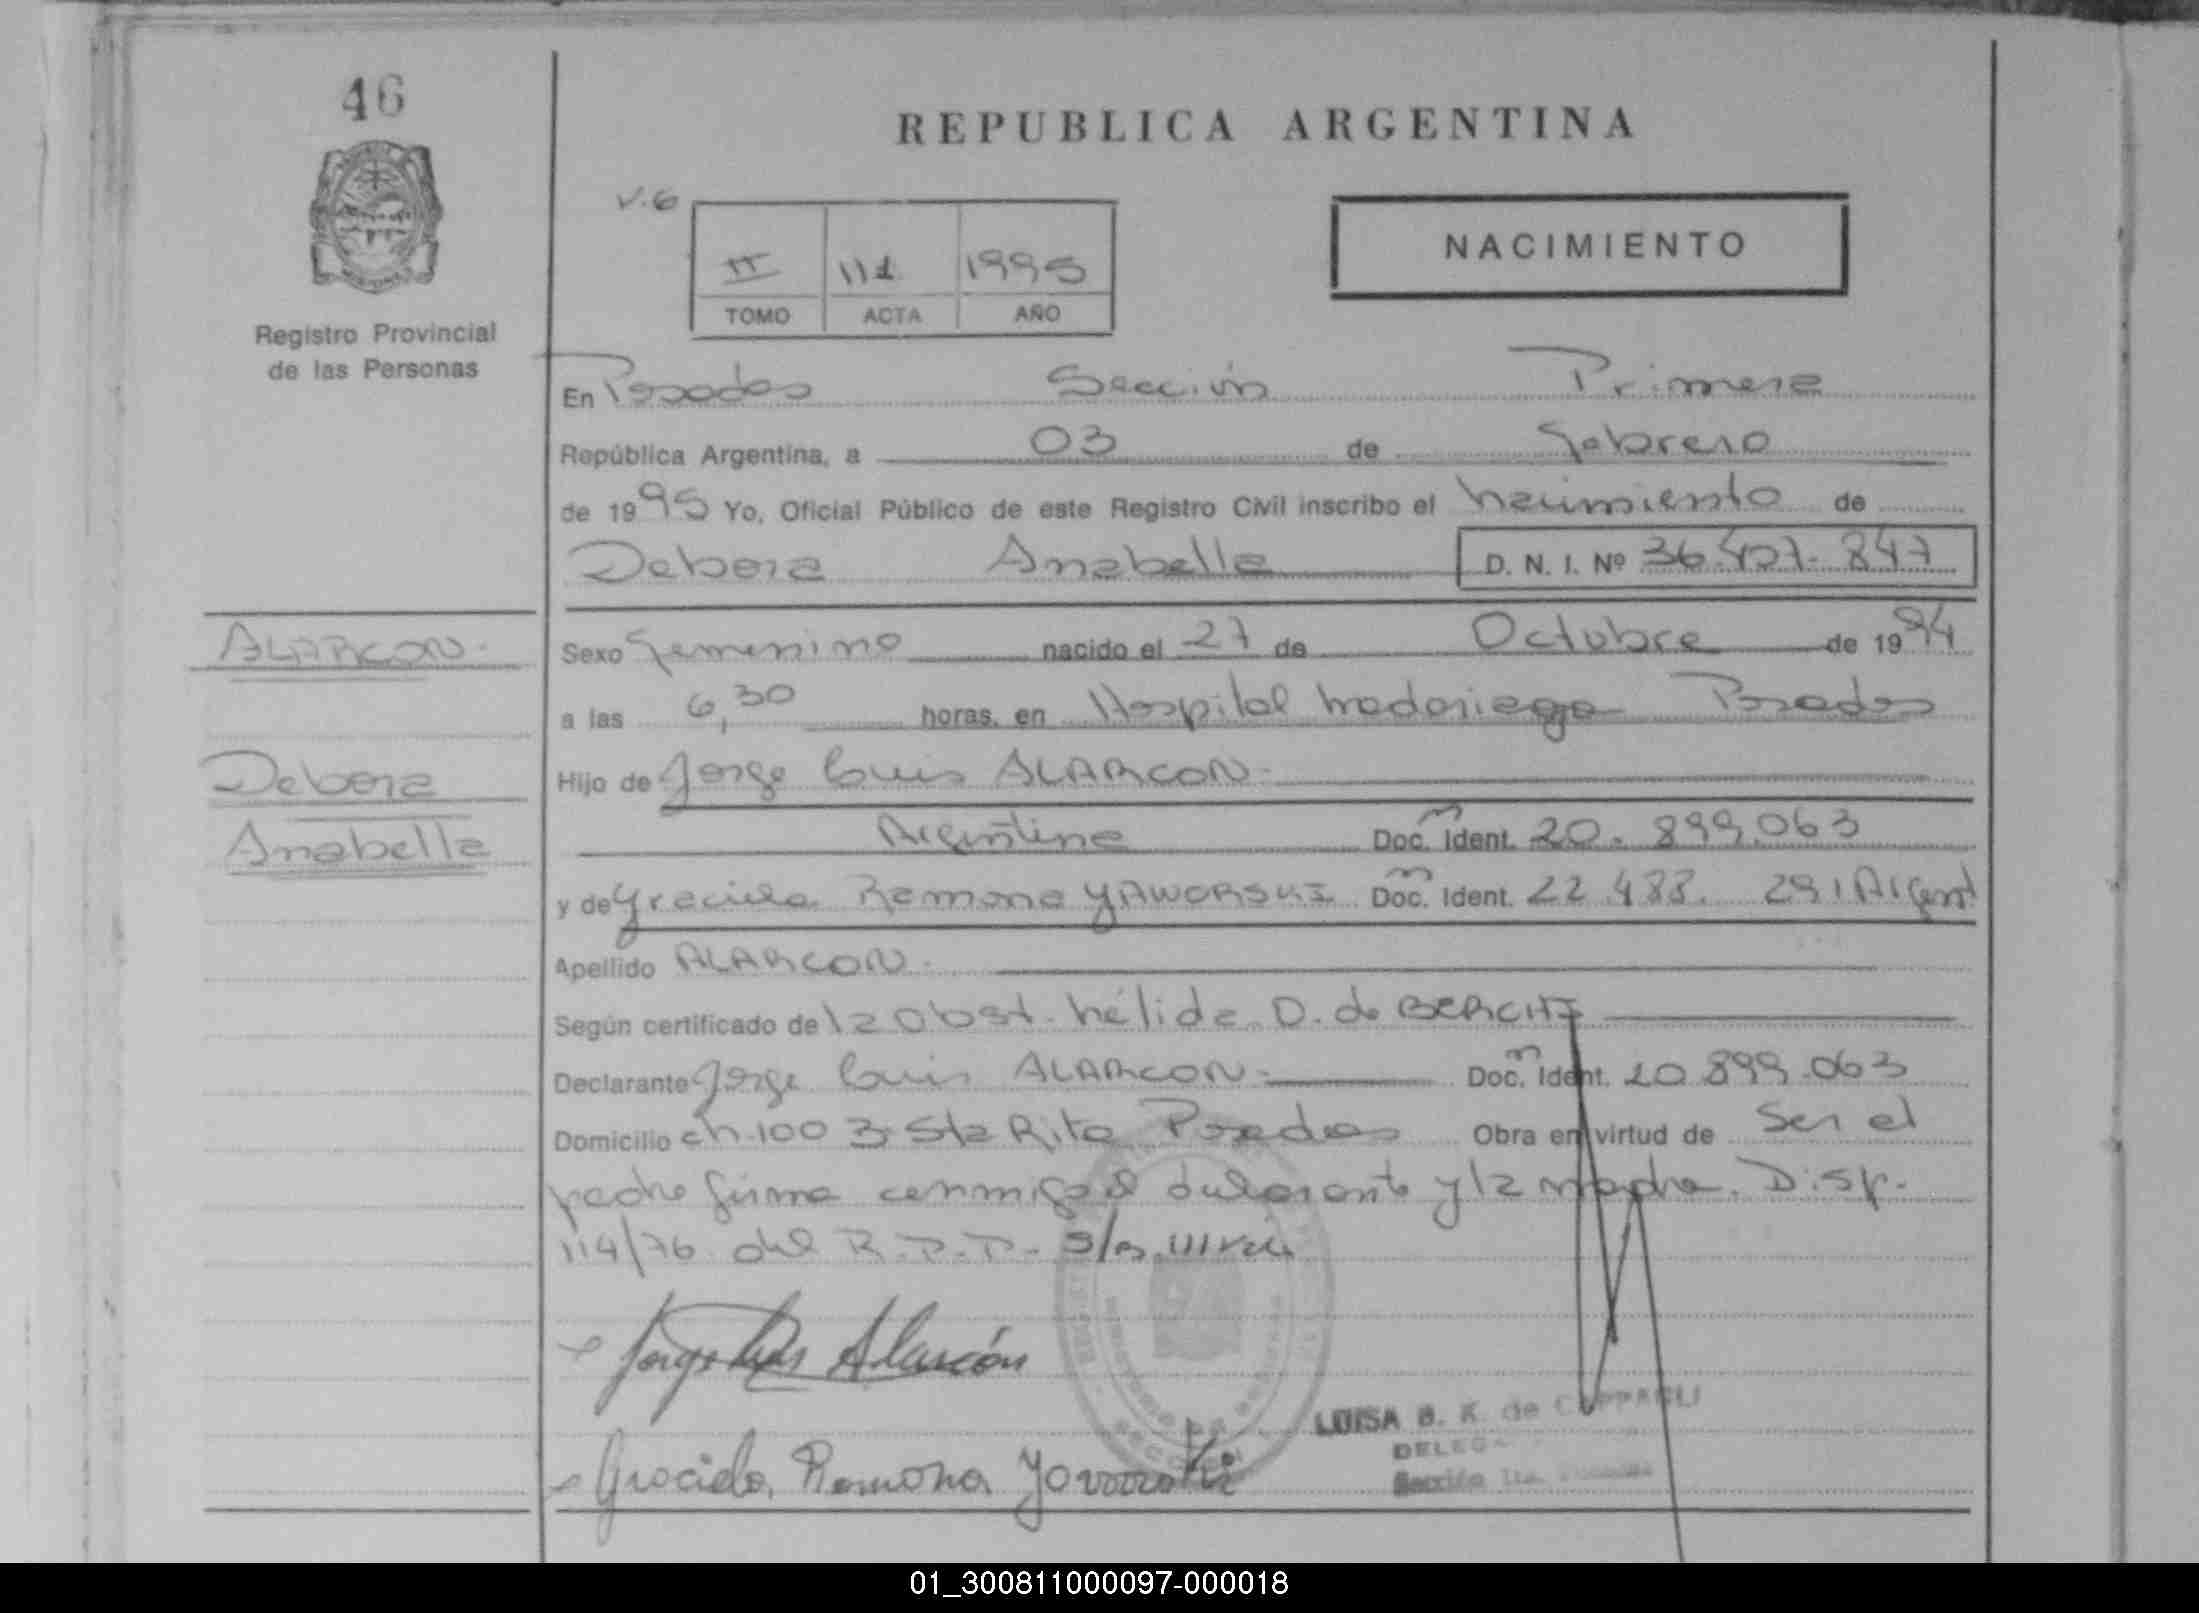 46
REPUBLICA ARGENTINA
v.6
II 111 1995
TOMO ACTA AÑO
NACIMIENTO
Registro Provincial
de las Personas
En Posadas Sección Primera
República Argentina, a 03 de Febrero
de 1995 Yo, Oficial Público de este Registro Civil inscribo el nacimiento de
Debora Anabella D. N. I. Nº 36.407.847
ALARCON.
Debora
Anabella
Sexo Femenino nacido el 27 de Octubre de 1994
a las 6,30 horas, en Hospital Madariaga Posadas
Hijo de Jorge Luis ALARCON
Argentina Doc. Ident. 20.899.063
y de Graciela Ramona YAWORSKI Doc. Ident. 22.488.291 Argent
Apellido ALARCON.
Según certificado de la Obst. Nélida D. de
Declarante Jorge Luis ALARCON Doc. Ident. 20.899.063
Domicilio ch.100 3 Sta Rita Posadas Obra en virtud de Ser el
padre firma conmigo el declarante y la madre. Disp.
114/76 del R.P.P.
Jorge Luis Alarcón
Graciela Ramona
LUISA B. K. de
DELEGA
Sección 1ra.
01_300811000097-000018